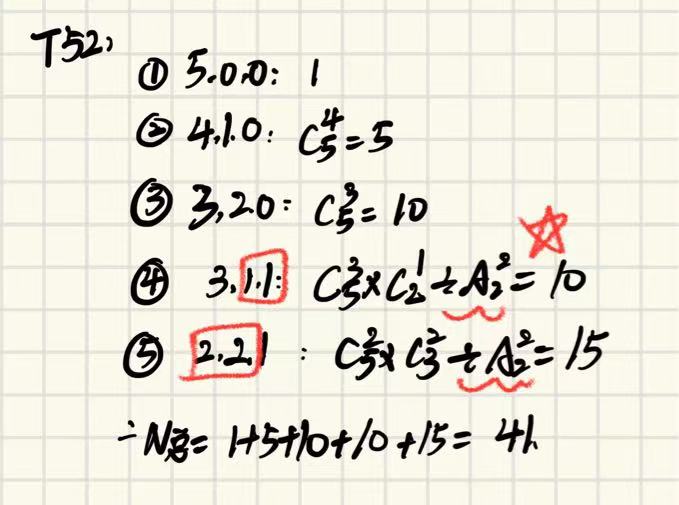 T52,
① 5.0.0: 1
② 4.1.0: C₅⁴=5
③ 3,2.0: C₅³=10
④ 3.1.1: C₅³×C₂¹÷A₂²=10
⑤ 2,2,1: C₅²×C₃²÷A₂²=15
∴N总=1+5+10+10+15=41.